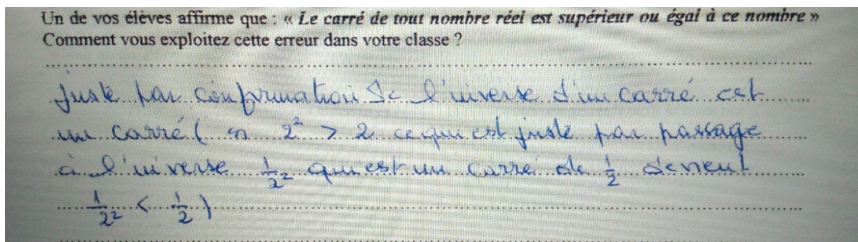 Un de vos élèves affirme que : « Le carré de tout nombre réel est supérieur ou égal à ce nombre »
Comment vous exploitez cette erreur dans votre classe ?
Juste par confrmation de l'inverse d'un carré est
un carré ( 2² > 2 ce qui est juste par passage
à l'inverse 1/2² qui est un carré de 1/2 devient
1/2² < 1/2 )